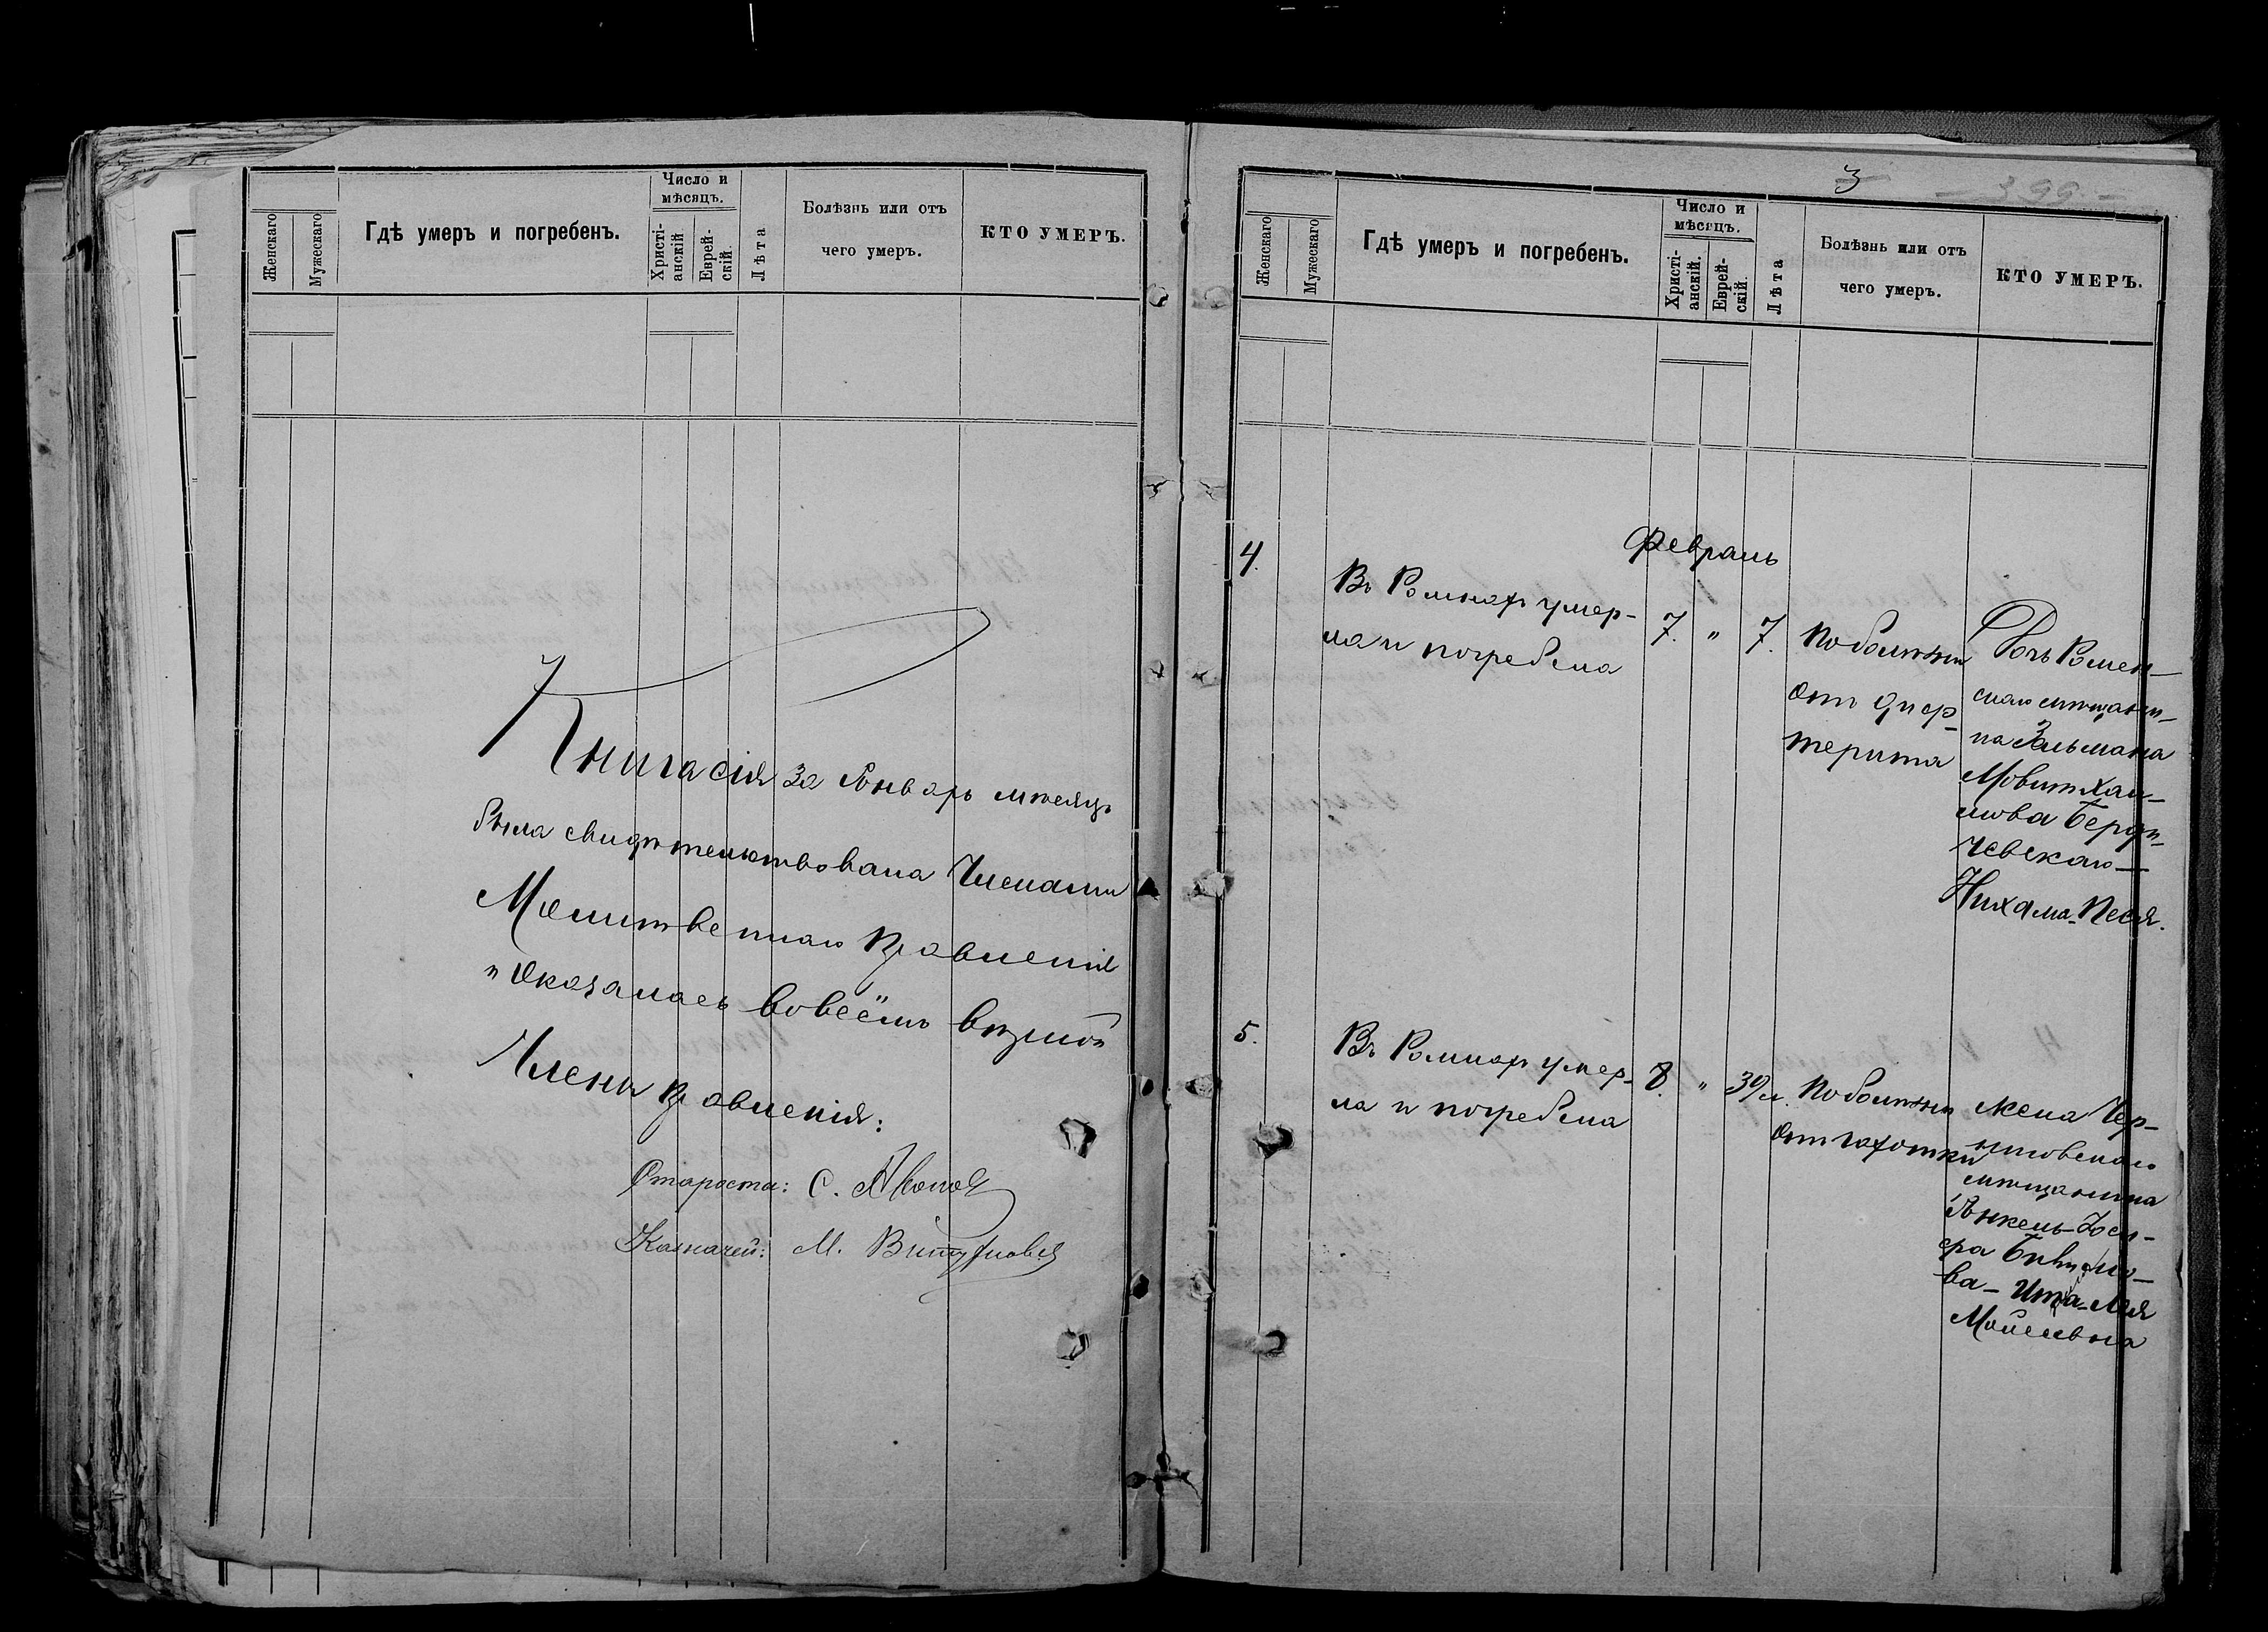 Женскаго
Мужескаго
Гдѣ умеръ и погребенъ.
Число и мѣсяцъ.
Христі-
анскій
Еврей-
скій.
Лѣта
Болѣзнь или отъ
чего умеръ.
КТО УМЕРЪ.
Книга сія за Январь мѣсяцъ
была свидѣтельствована Членами
Молитвеннаго Правленія
и оказалась вовсемъ вѣрной
Члены Правленія:
Староста: С.
Казначей: М.
3
399
Женскаго
Мужескаго
Гдѣ умеръ и погребенъ.
Число и
мѣсяцъ.
Христі-
анскій.
Еврей-
скій.
Лѣта
Болѣзнь или отъ
чего умеръ.
КТО УМЕРЪ.
Февраль
4.
Въ Ромнахъ умер-
ла и погребена
7. " 7.
По болѣзни
отъ диф-
терита
Дочь Ромен-
скаго мѣщани-
на Зальмана
Мовши Хаи-
мова Берди-
чевскаго —
Нихама-Песя.
5.
Въ Ромнахъ умер-
ла и погребена
8. " 39 л.
По болѣзни
отъ чахотки
Жена Чер-
ниговскаго
мѣщанина
Янкель-Іос-

ва - Ита-Лея
Мойсеевна